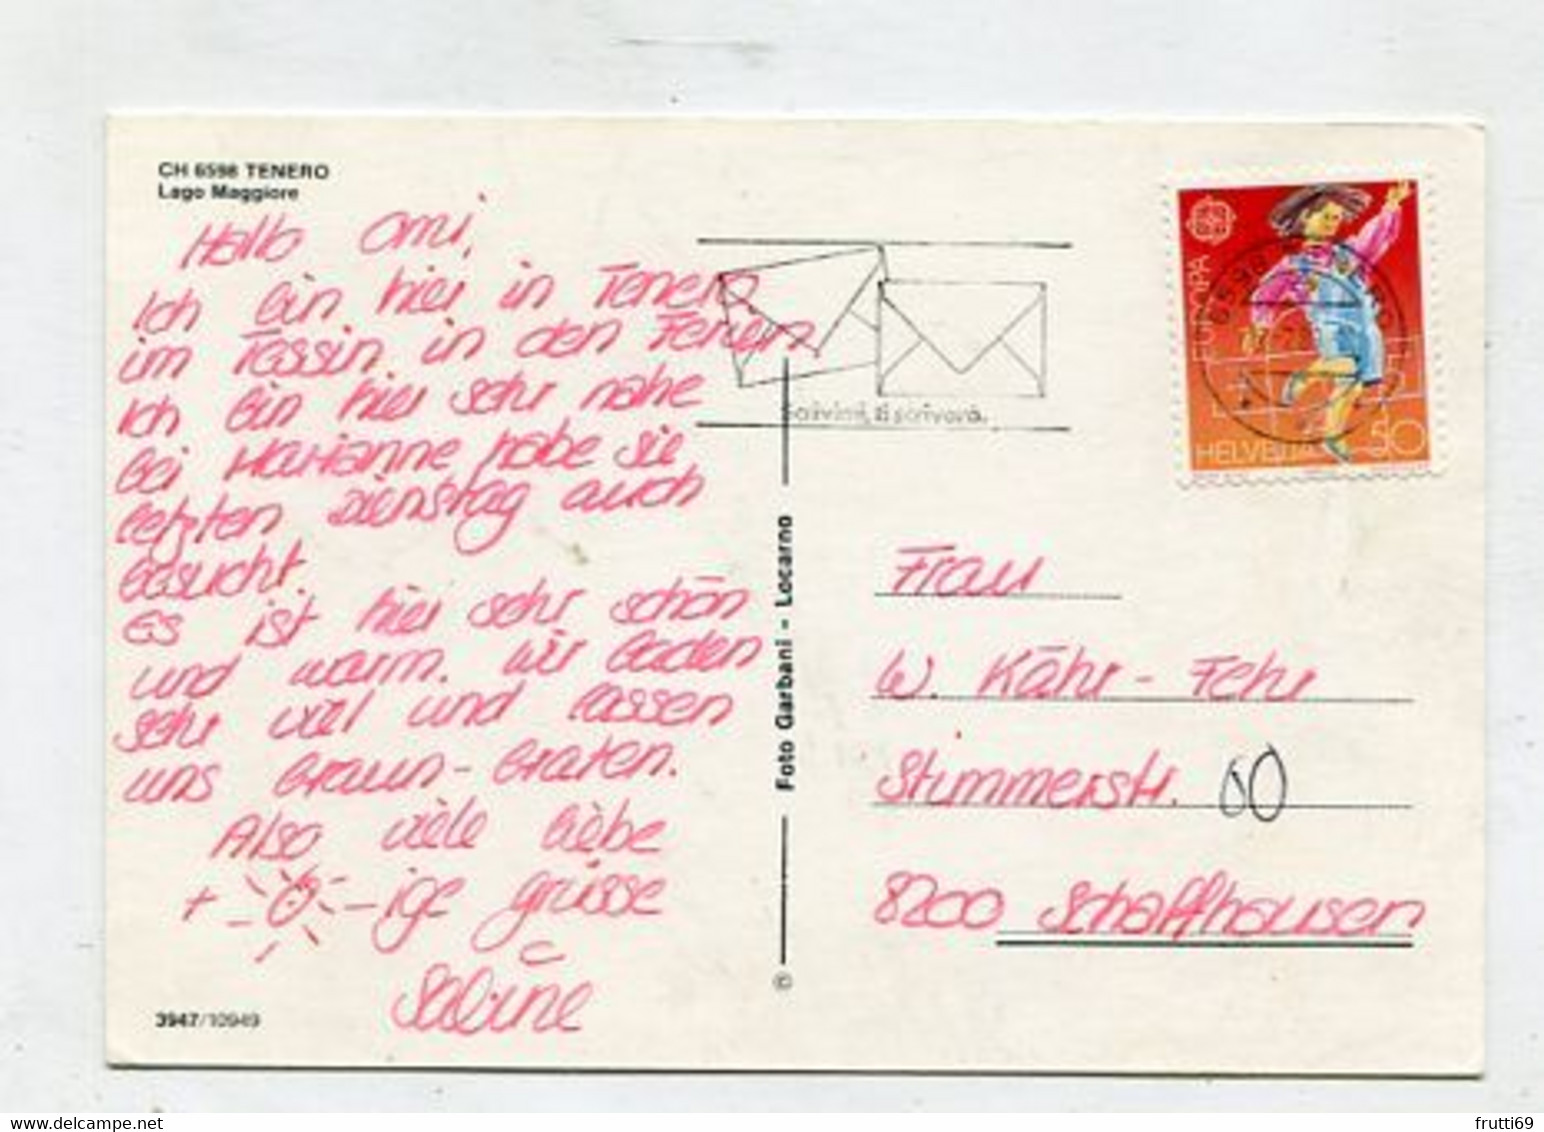 CH 6598 TENERO
Lago Maggiore
Hallo Omi,
Ich bin hier in Tenero
im Tessin in den Ferien.
Ich bin hier sehr nahe
bei Marianne habe sie
letzten Dienstag auch
besucht.
Es ist hier sehr schön
und warm. Wir baden
sehr viel und lassen
uns braun-braten.
Also viele liebe
+ -ige grüsse
Sabine
3947/10949
Foto Garbani - Locarno
©
Scrivimi, ti scriverò.
EUROPA
HELVETIA 50
Frau
W. Kähr-Fehr
Stimmerstr. 60
8200 Schaffhausen
frutti69